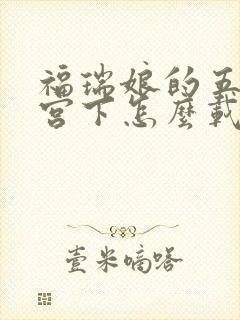 福瑞娘的五
宫下怎麼載
壹米嘀嗒